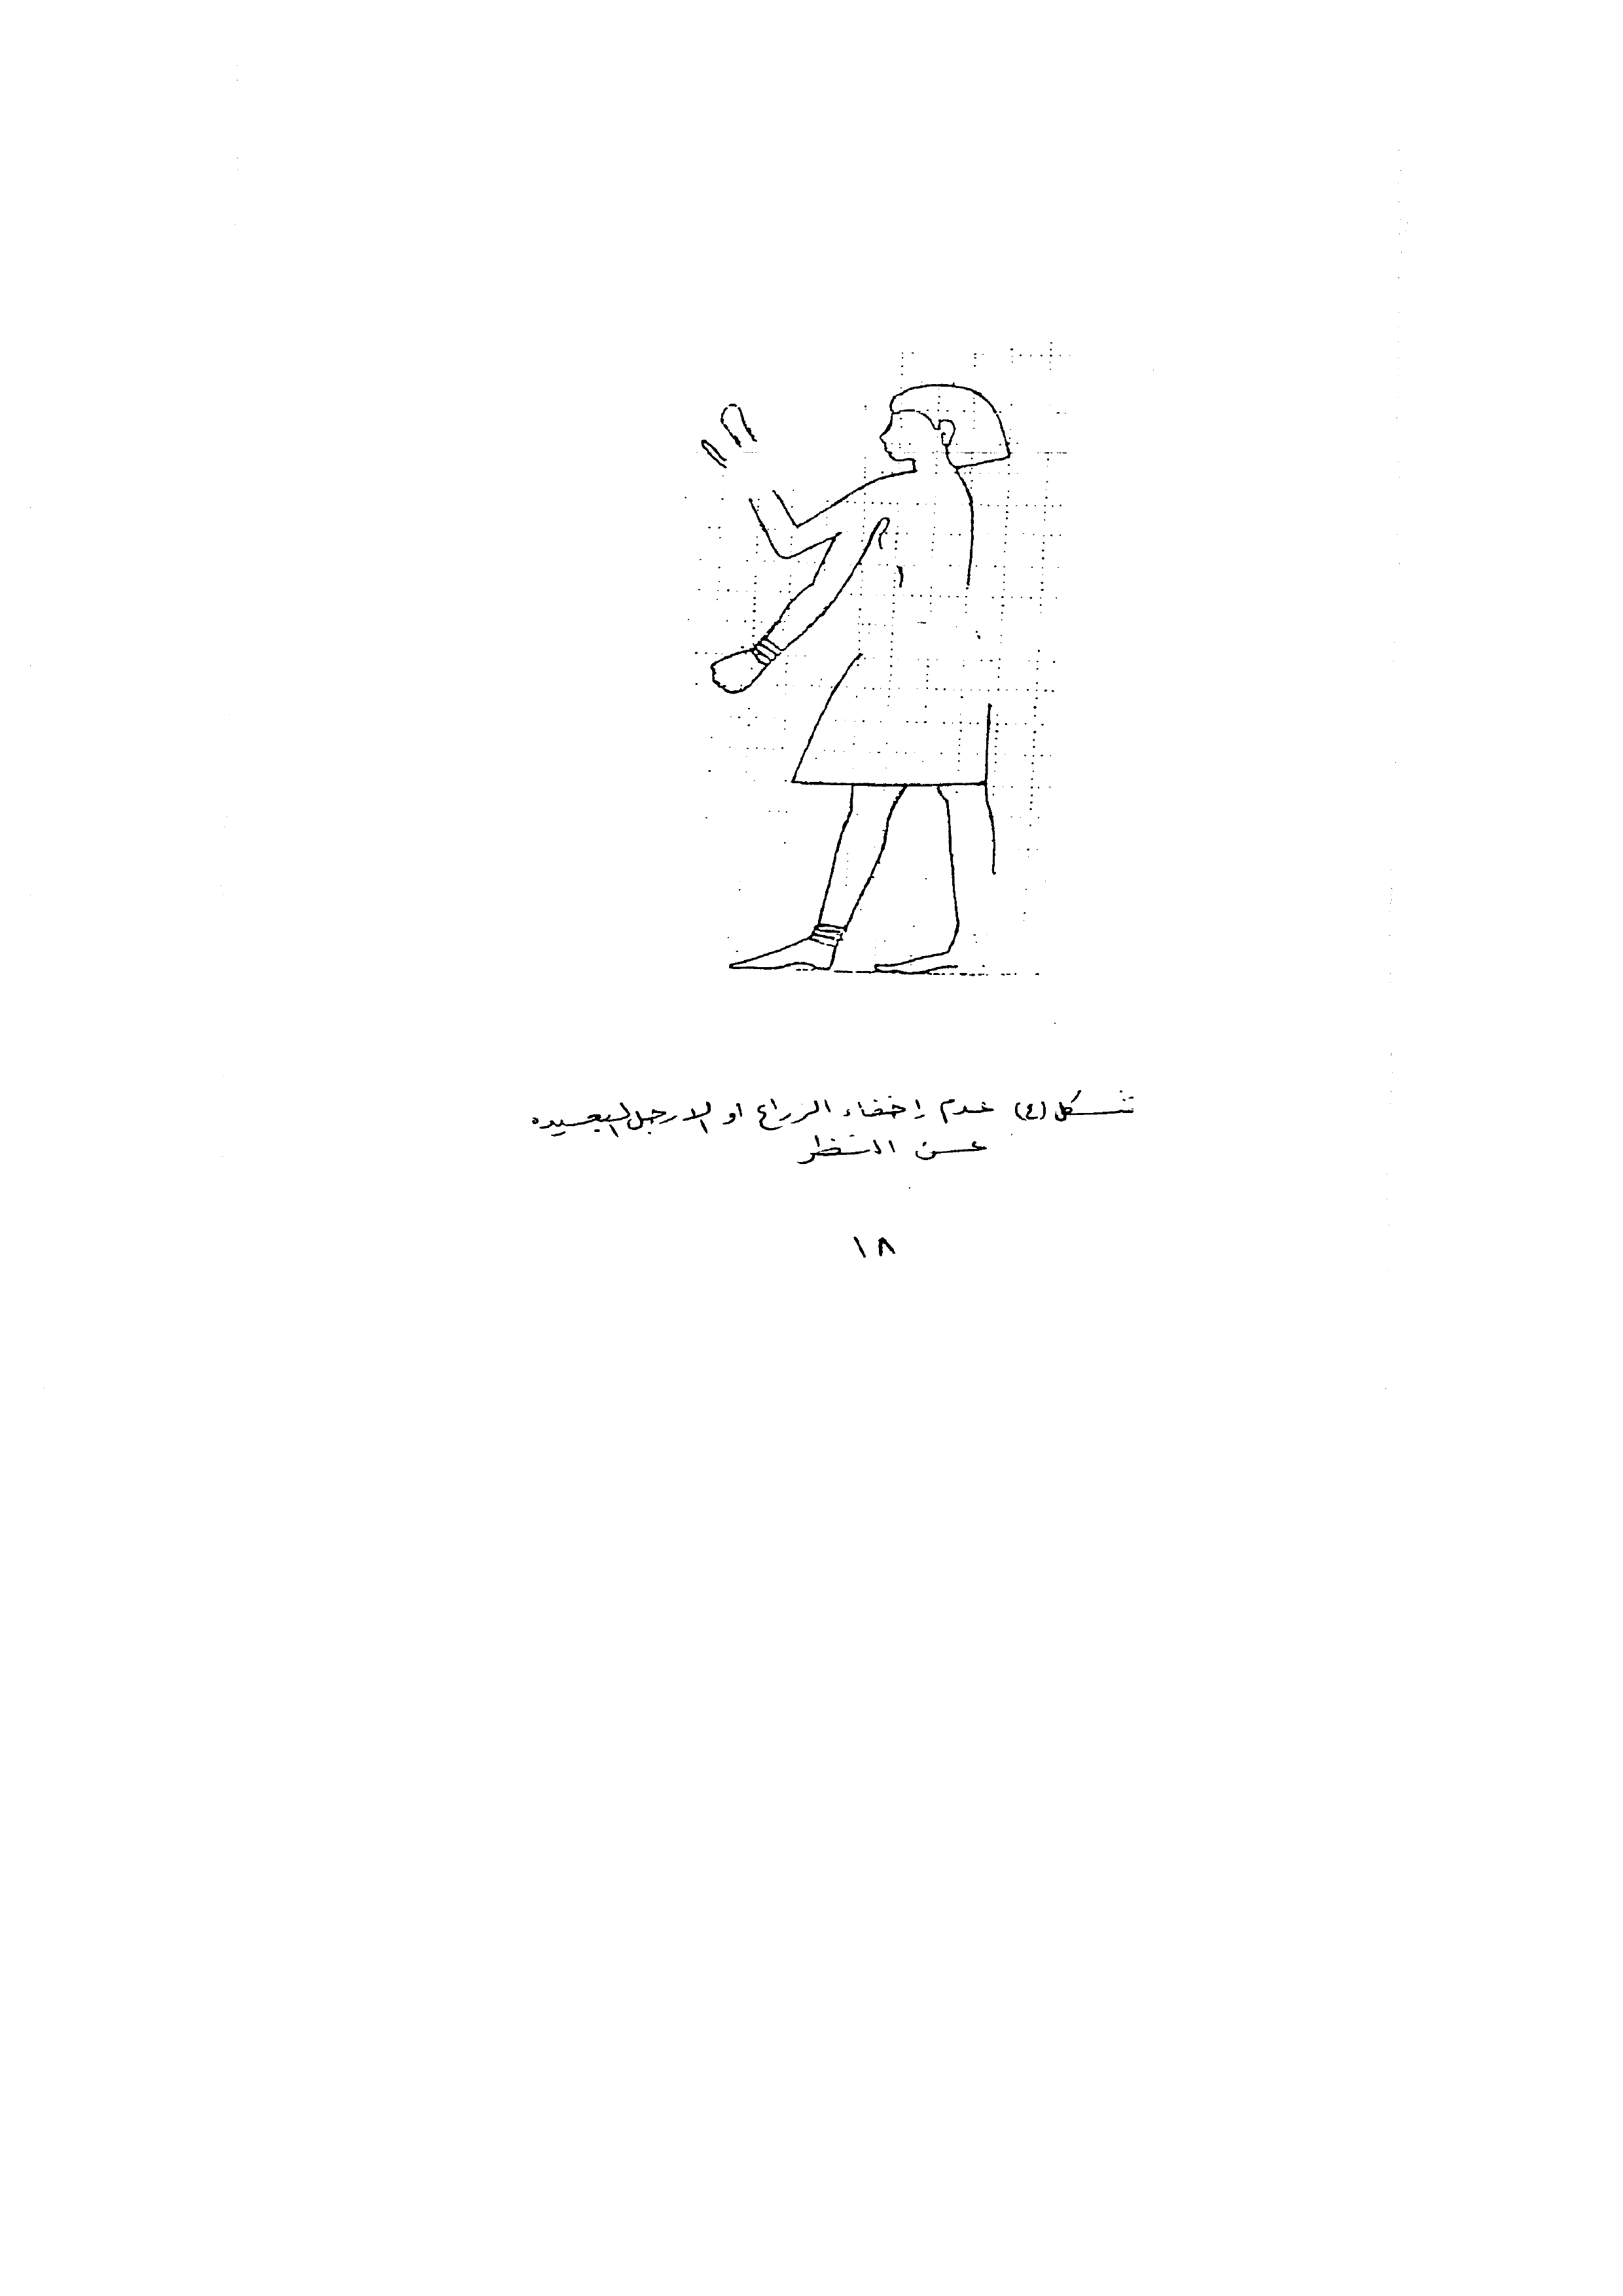 شكل (٤) عدم إخفاء الزراع او الارجل البعيده
عن النظر
١٨